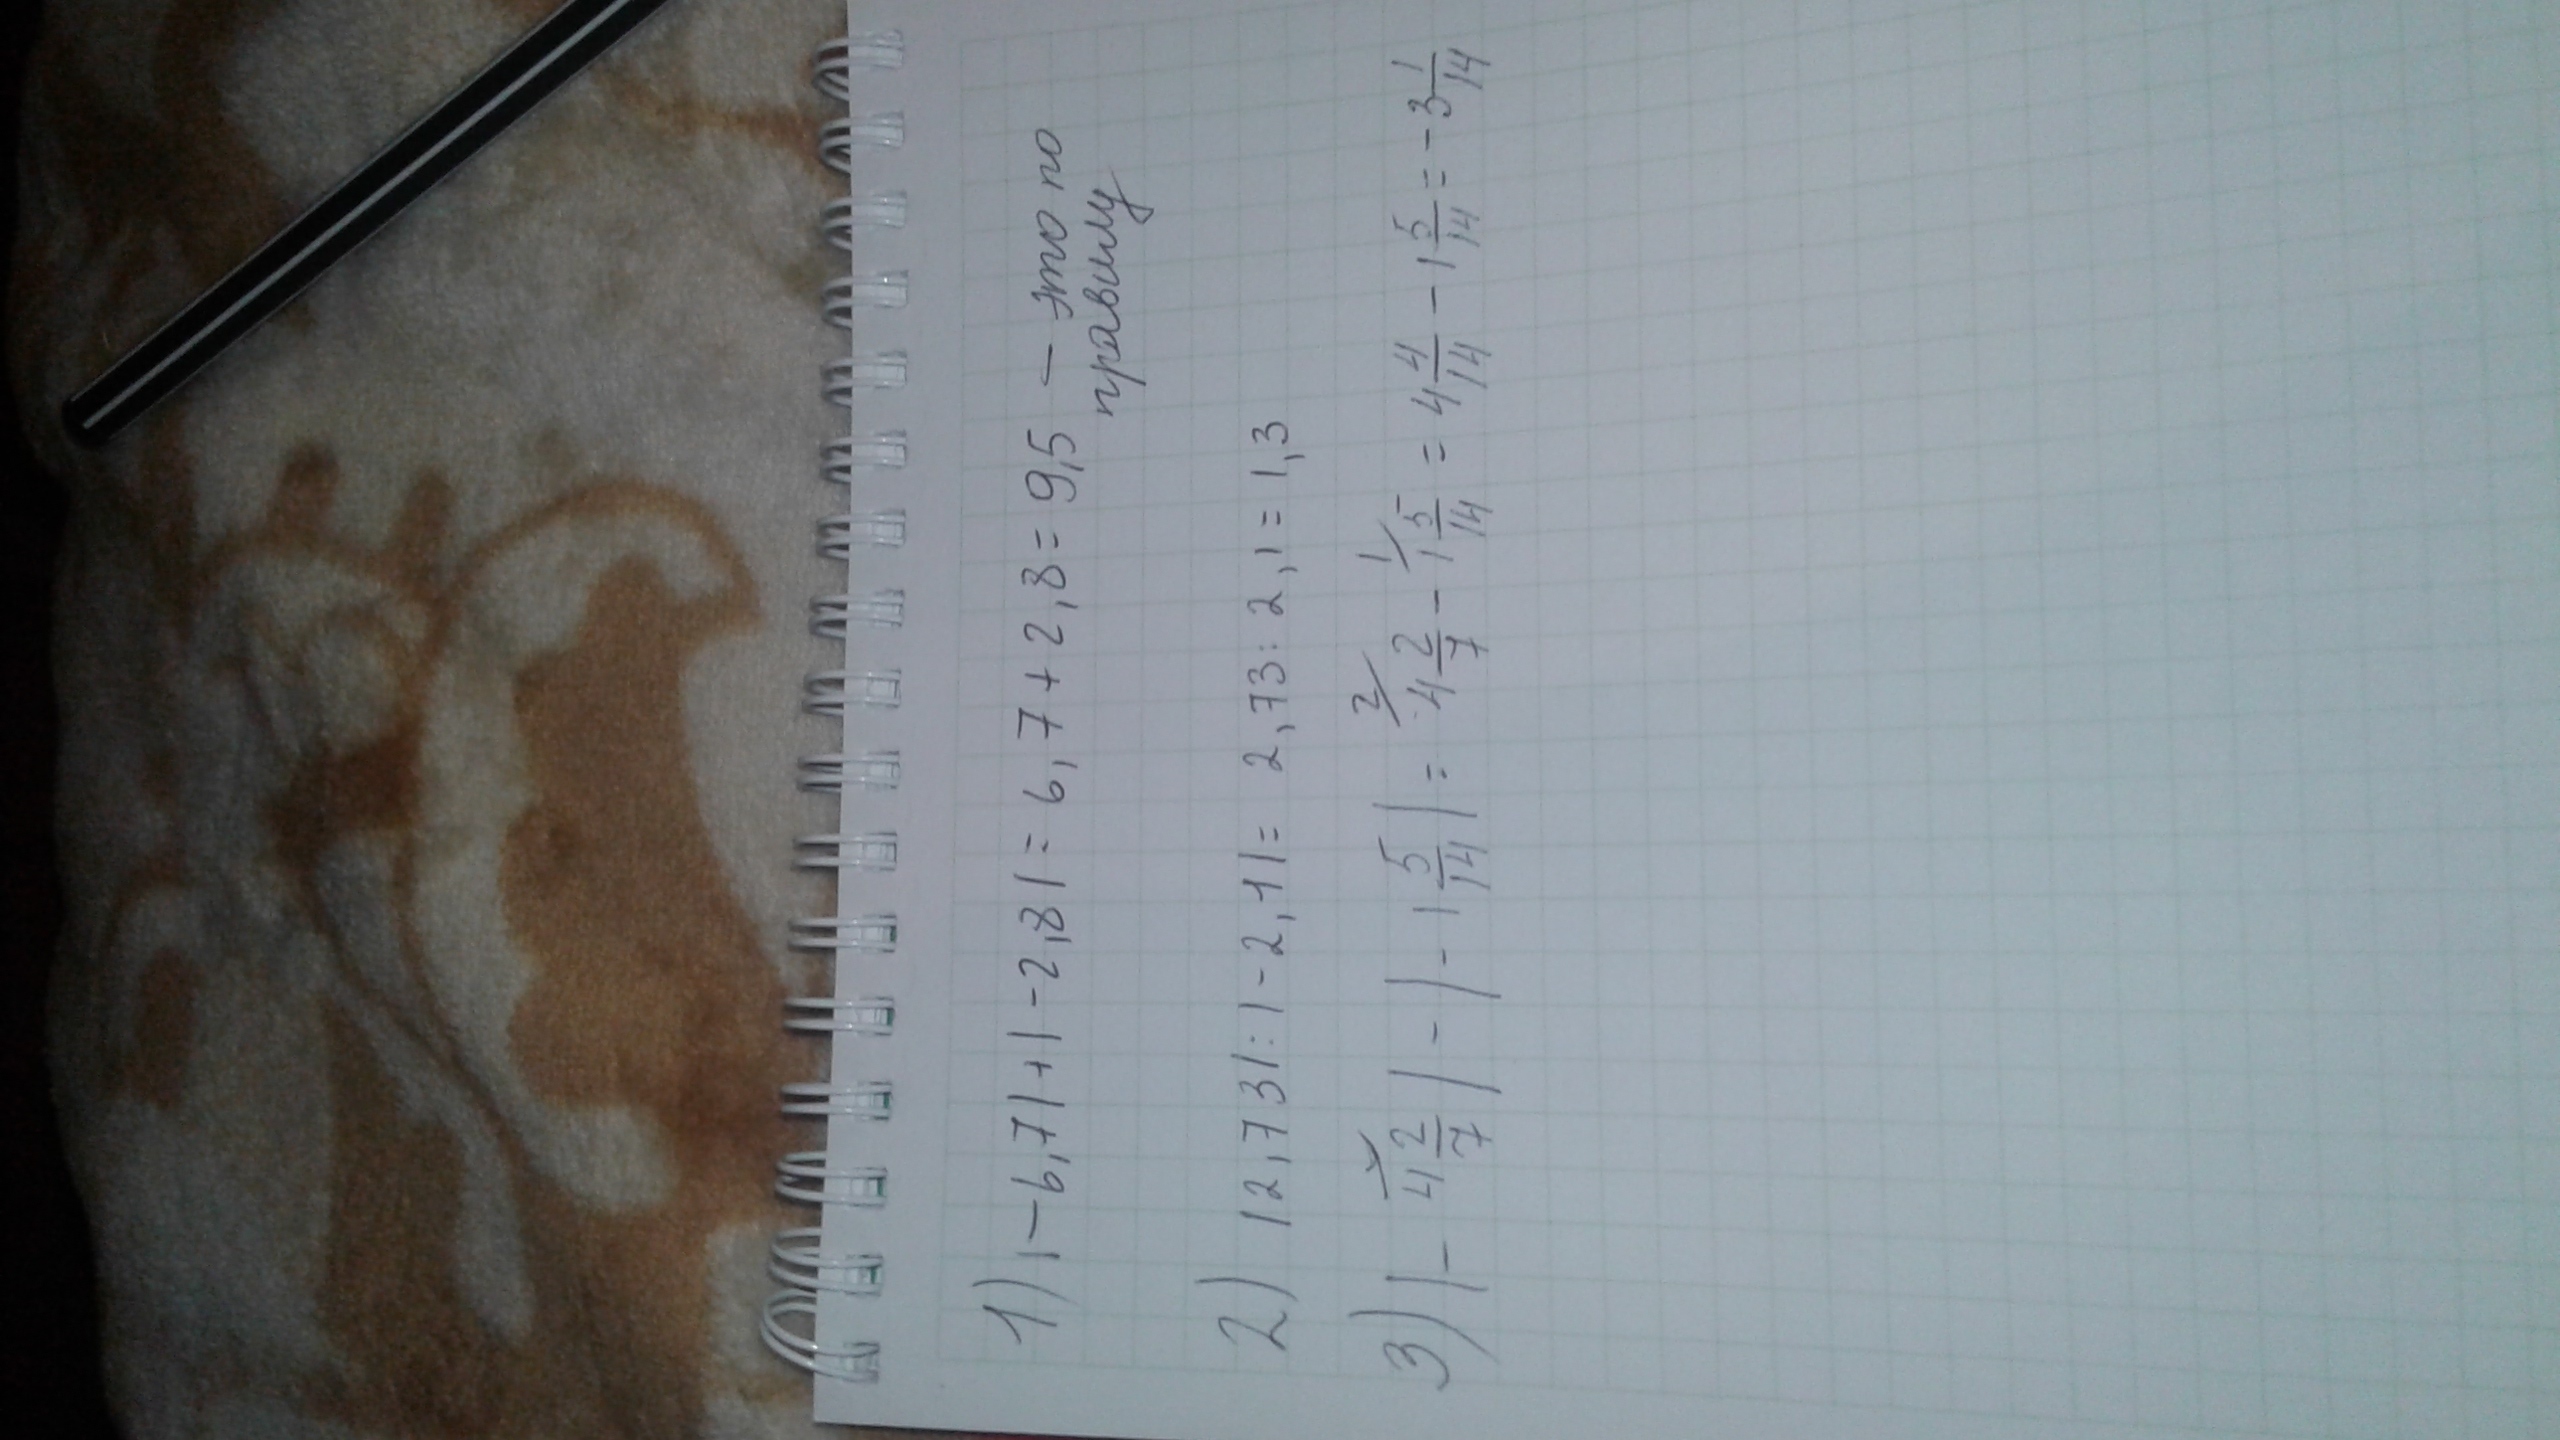 1) |-6,7|+|-2,8|=6,7+2,8=9,5 – это по
правилу
2) |2,73|:|-2,1|= 2,73:2,1=1,3
3) |-4 2/7|-|-1 5/14|= 4 2/7 - 1 5/14 = 4 4/14 - 1 5/14 = -3 1/14